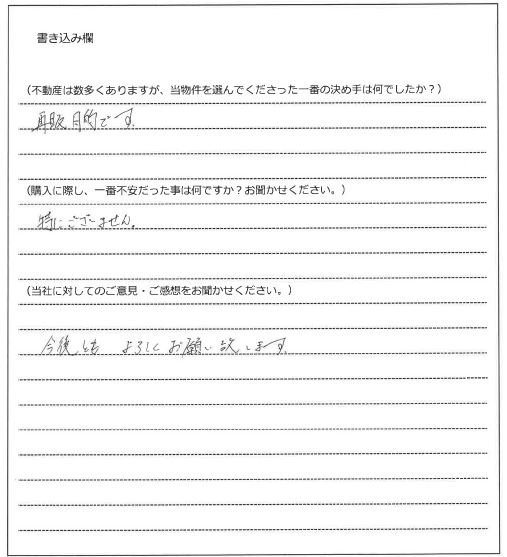 書き込み欄
（不動産は数多くありますが、当物件を選んでくださった一番の決め手は何でしたか？）
再販目的です。
（購入に際し、一番不安だった事は何ですか？お聞かせください。）
特にございません。
（当社に対してのご意見・ご感想をお聞かせください。）
今後とも よろしくお願い致します。